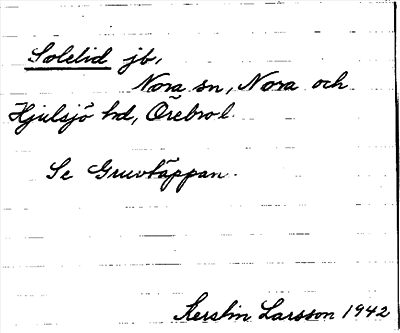 Solelid jb,
Nora sn, Nora och
Hjulsjö hd, Örebro l.
Se Gruvtäppan.
Kerstin Larsson 1942